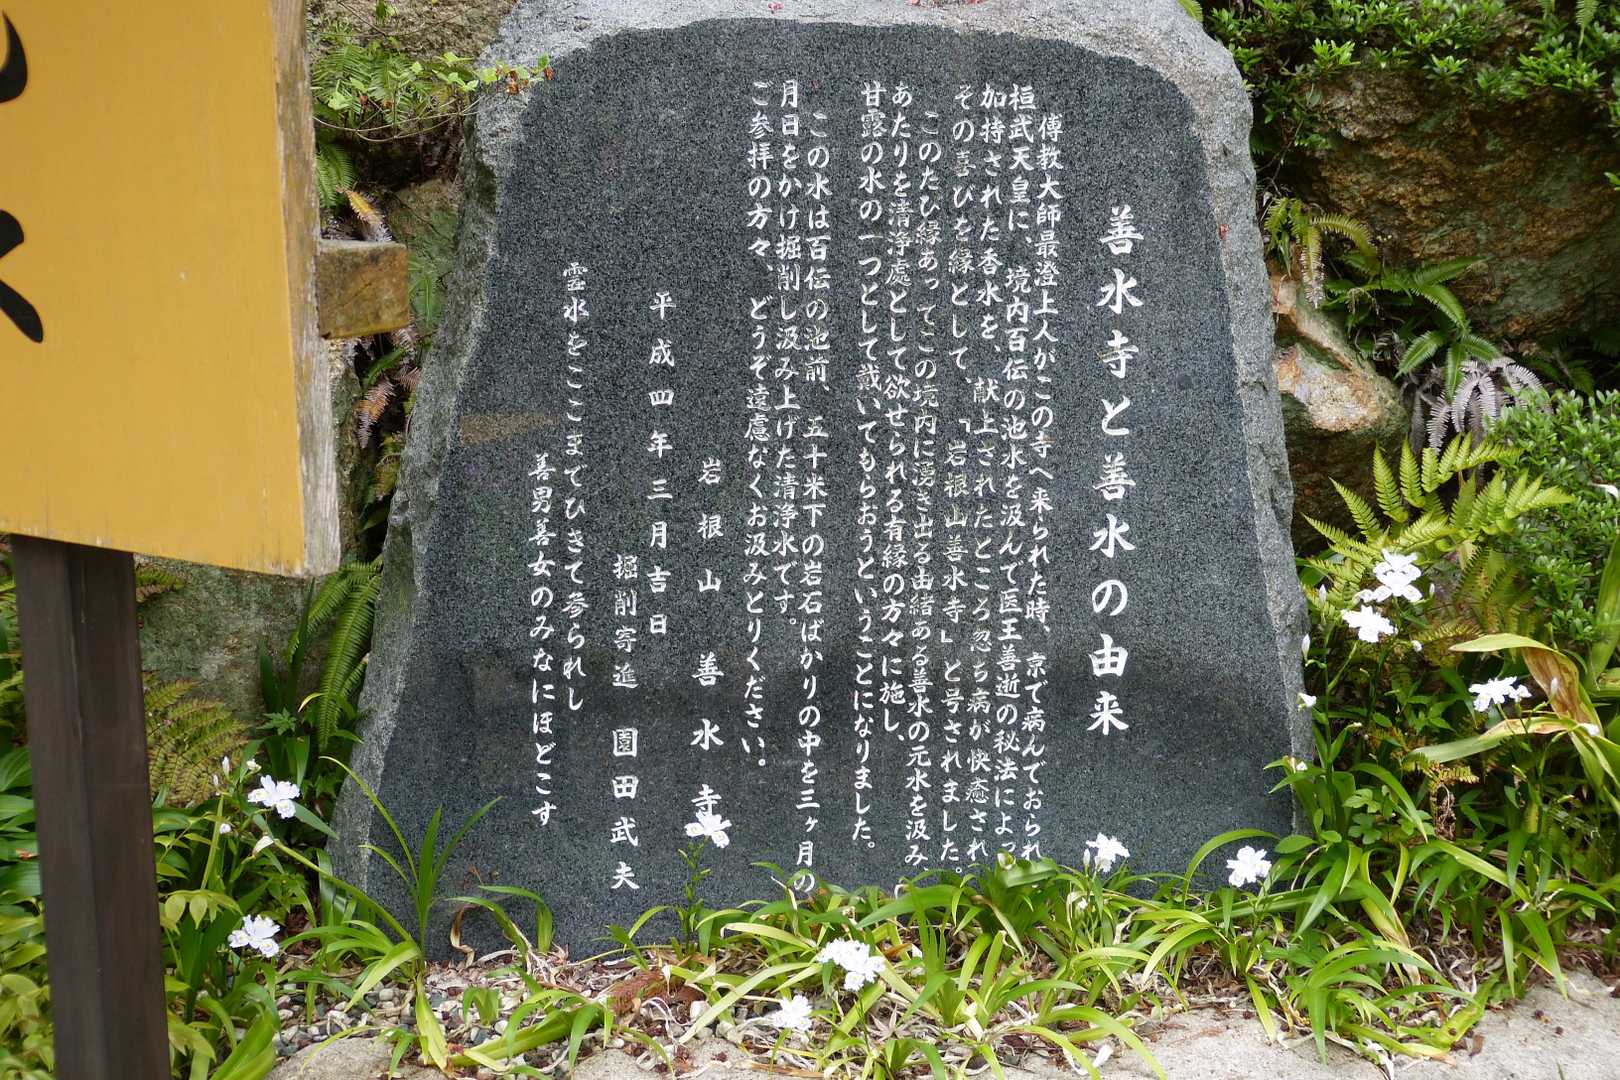 善水寺と善水の由来
傳教大師最澄上人がこの寺へ来られた時、京で病んでおられ
桓武天皇に、境内百伝の池水を汲んで医王善逝の秘法によっ
加持された香水を、献上されたところ忽ち病が快癒され
その喜びを縁として、「岩根山善水寺」と号されました。
このたび縁あってこの境内に湧き出る由緒ある善水の元水を汲み
あたりを清浄處として欲せられる有縁の方々に施し、
甘露の水の一つとして戴いてもらおうということになりました。
この水は百伝の池前、五十米下の岩石ばかりの中を三ヶ月の
月日をかけ掘削し汲み上げた清浄水です。
ご参拝の方々、どうぞ遠慮なくお汲みとりください。
岩根山 善水寺
平成四年三月吉日
掘削寄進 園田武夫
霊水をここまでひきて参られし
善男善女のみなにほどこす